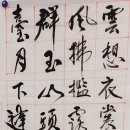 雲想衣裳
風拂檻露
群玉山頭
臺月下逢